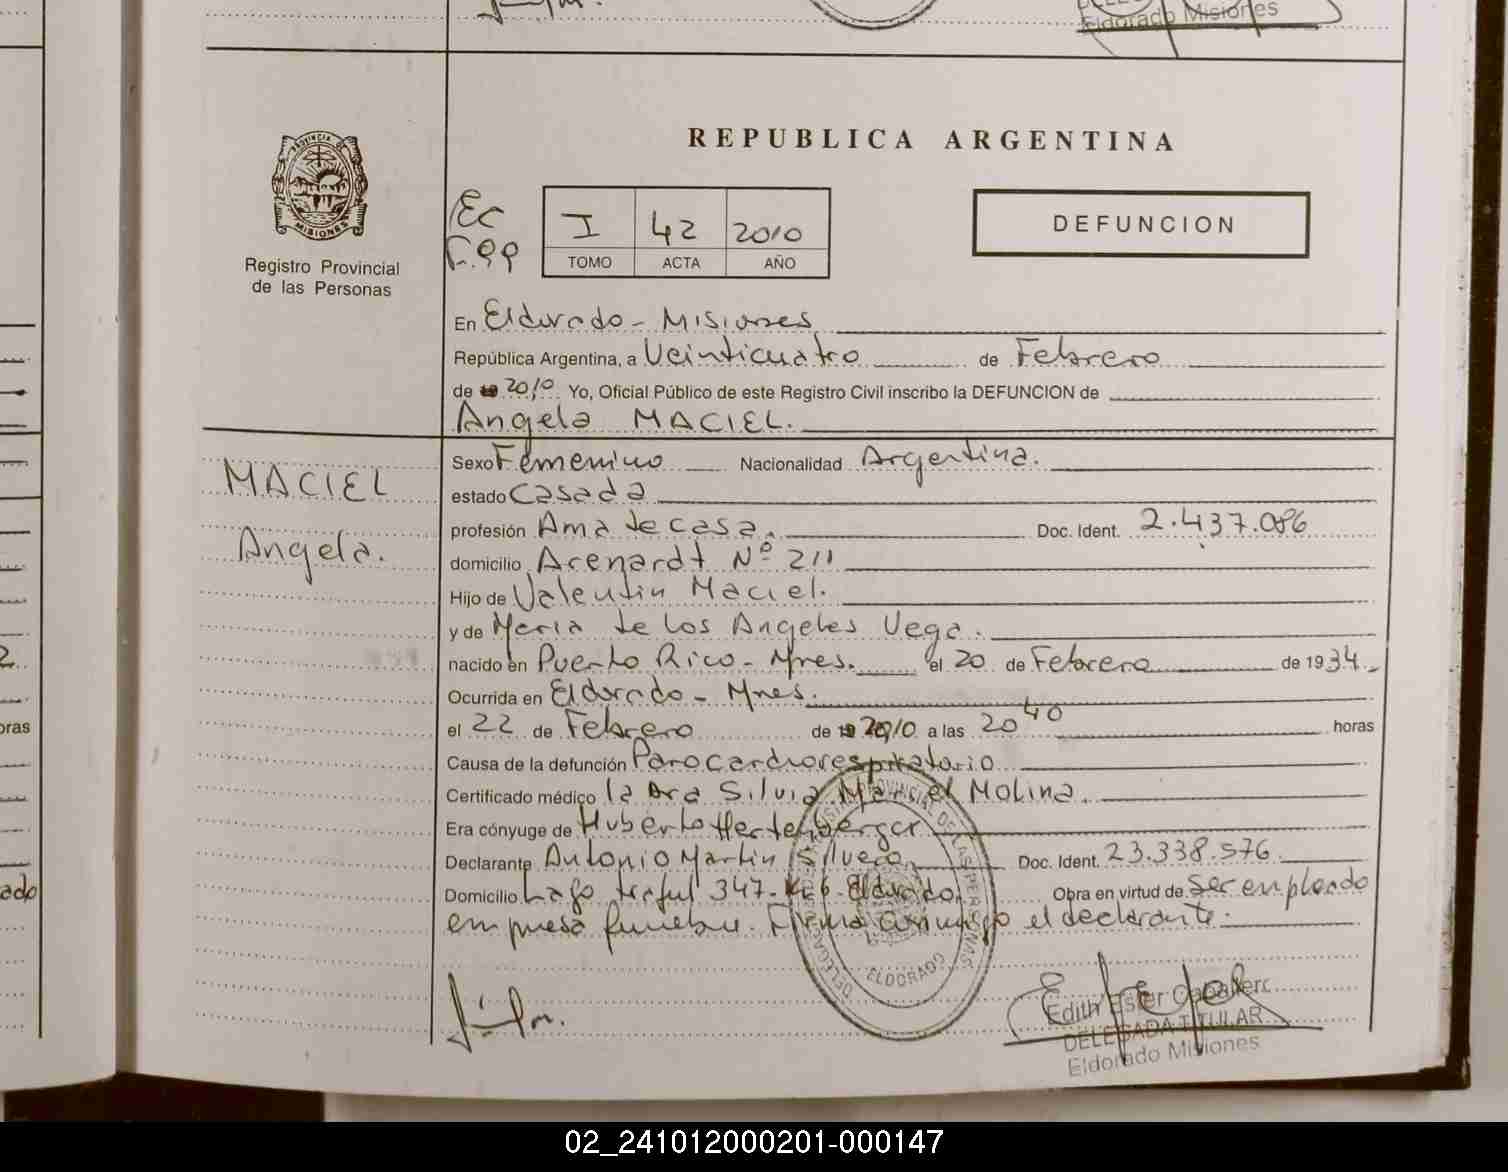 Eldorado Misiones
REPUBLICA ARGENTINA
PROVINCIA DE
MISIONES
Registro Provincial
de las Personas
I 42 2010
TOMO ACTA AÑO
DEFUNCION
En Eldorado - Misiones
República Argentina, a Veinticuatro de Febrero
de 2010 Yo, Oficial Público de este Registro Civil inscribo la DEFUNCION de
Angela MACIEL.
MACIEL
Angela.
Sexo Femenino Nacionalidad Argentina.
estado Casada
profesión Ama de casa. Doc. Ident. 2.437.086
domicilio Arenardt Nº 211
Hijo de Valentin Maciel.
y de Maria de los Angeles Vega.
nacido en Puerto Rico - Mnes. el 20 de Febrero de 1934
Ocurrida en Eldorado - Mnes.
el 22 de Febrero de 2010 a las 20 40 horas
Causa de la defunción Parocardiorespiratorio
Certificado médico la Dra Silvia Molina.
Era cónyuge de Huberto Hertenberger
Declarante Antonio Martin Silvero Doc. Ident. 23.338.576
Domicilio Lago traful 347 - Km 6 - Eldorado Obra en virtud de Ser empleado
empresa funebre. Firma conmigo el declarante.
ELDORADO
Edith Ester Caballero
DELEGADA TITULAR
Eldorado Misiones
02_241012000201-000147